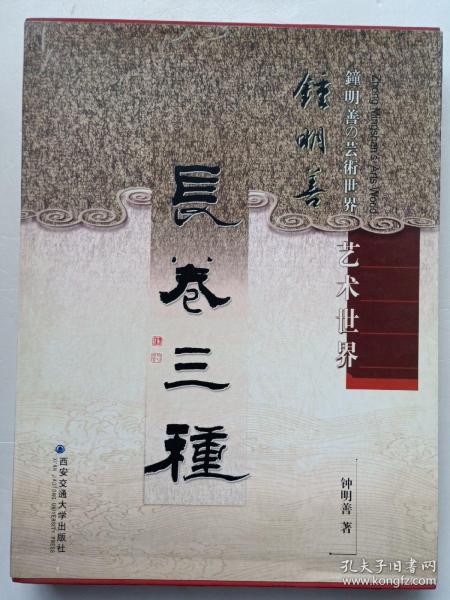 鐘明善の芸術世界
Zhong Mingshan's Arts World
鍾明善
艺术世界
長卷三種
钟明善 著
西安交通大学出版社
XI'AN JIAOTONG UNIVERSITY PRESS
孔夫子旧书网
www.kongfz.com